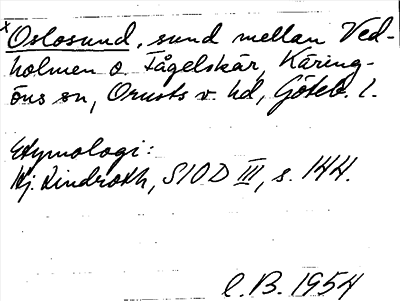 x Oslosund, sund mellan Ved-
holmen o. Fågelskär, Käring-
öns sn, Orusts v. hd, Göteb. l.
Etymologi:
Hj. Lindroth, SIOD III, s. 144.
C. B. 1954